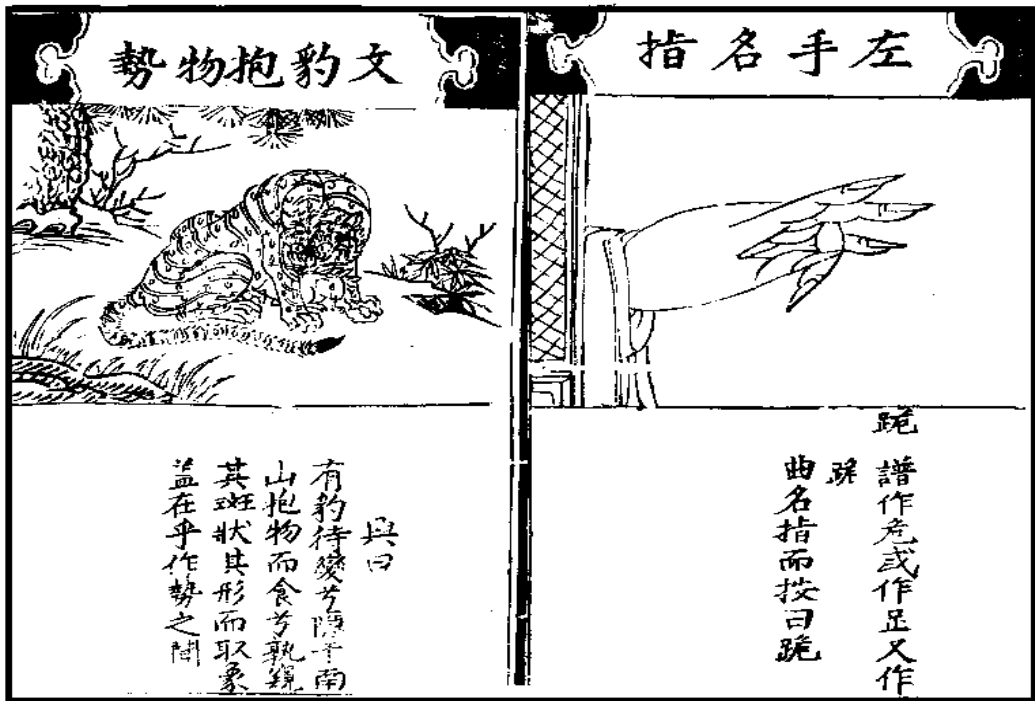 左手名指
跪 譜作危或作足又作
曲名指而按曰跪
文豹抱物勢
興曰
有豹待變兮隱乎南
山抱物而食兮孰窺
其斑狀其形而取象
蓋在乎作勢之間